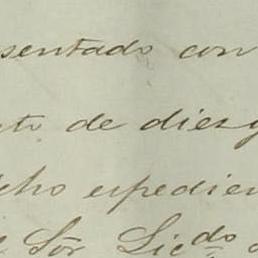 sentado con
to de diez y
cho espedien
Sõr Licdo